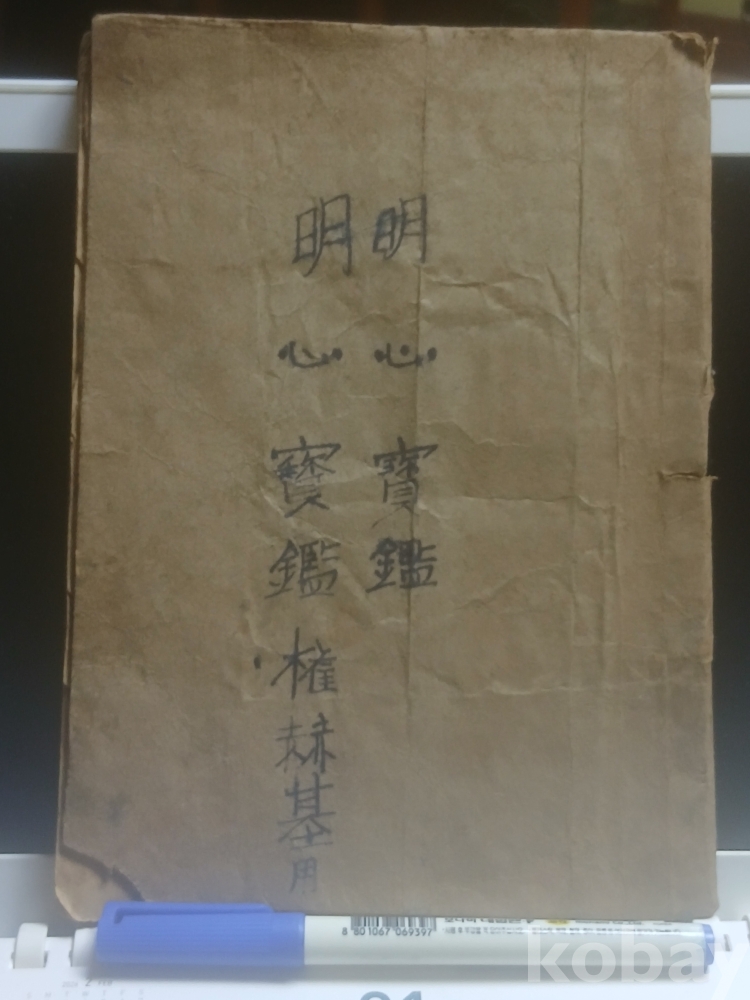 明心寶鑑
明心寶鑑 權赫基用
8 801067 069397
kobay